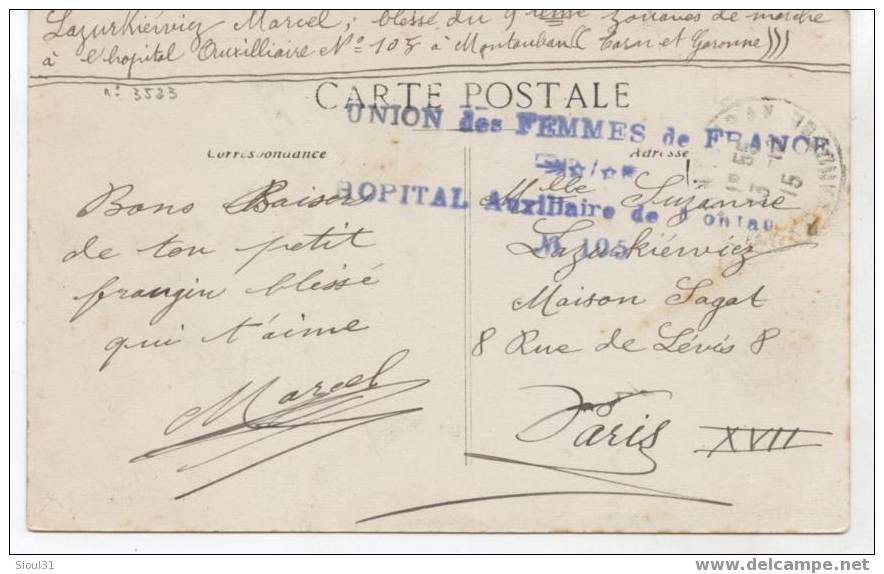 Lazurkiérvicz Marcel, blessé du 9ième zouaves de marche
à l'hopital Auxilliaire No 105 à Montauban (Tarn et Garonne)))
no 3533
CARTE POSTALE
UNION des FEMMES de FRANCE
Correspondance
Adresse
HOPITAL Auxiliaire de Montau
No 105
Bons Baisers
de ton petit
frangin blessé
qui t'aime
Marcel
Mlle Suzanne
Lazurkiérvicz
Maison Sagat
8 Rue de Lévis 8
Paris XVII
Sioul31
delcampe.net